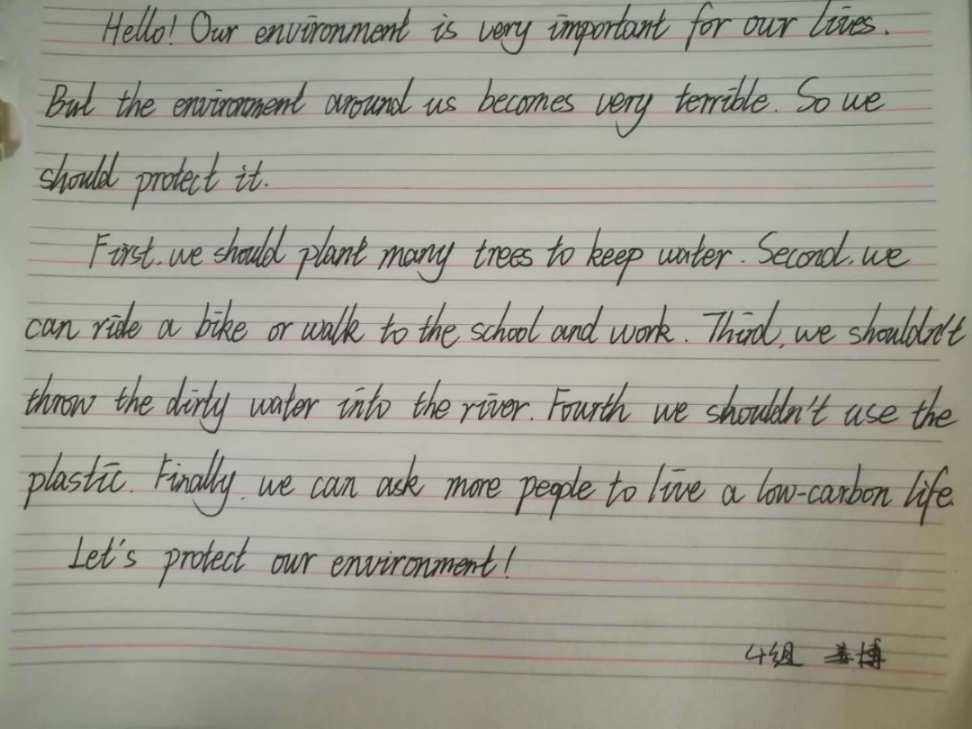 Hello! Our environment is very important for our lives.
But the environment around us becomes very terrible. So we
should protect it.
First, we should plant many trees to keep water. Second, we
can ride a bike or walk to the school and work. Third, we shouldn't
throw the dirty water into the river. Fourth we shouldn't use the
plastic. Finally, we can ask more people to live a low-carbon life.
Let's protect our environment!
4组